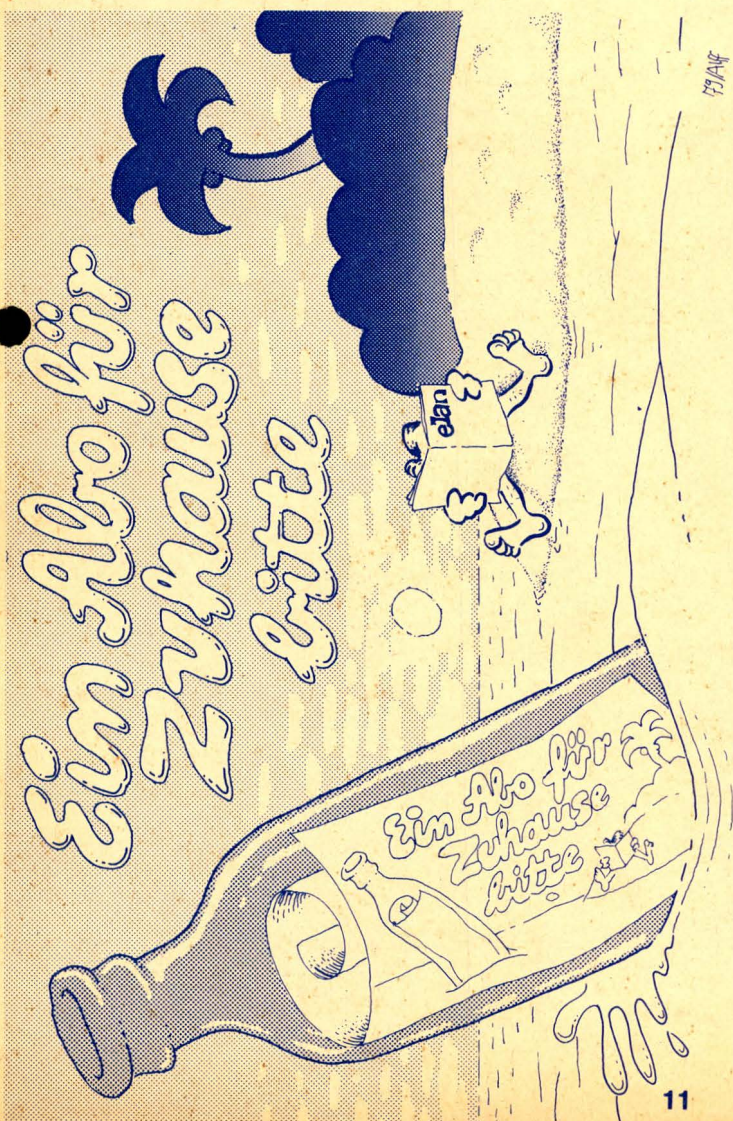 Ein Abo für
Zuhause
bitte
elan
Ein Abo für
Zuhause
bitte
11